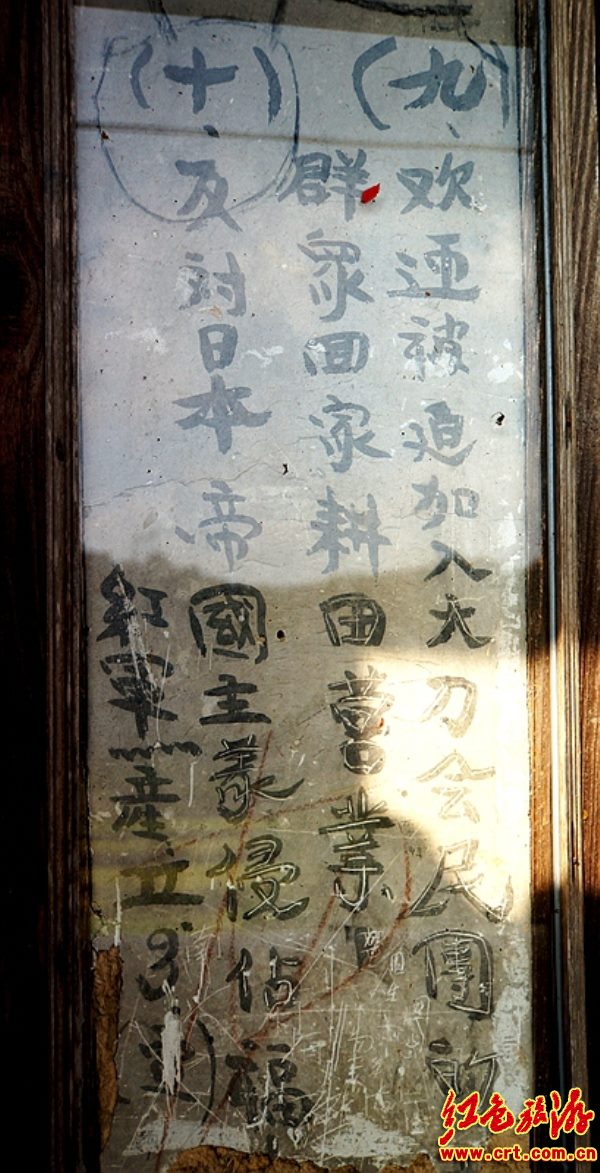 (九)、欢迎被迫加入大刀会民團的
群衆回家耕田營業！
(十)、反対日本帝國主義侵佔福
紅軍產立3
红色旅游
www.crt.com.cn